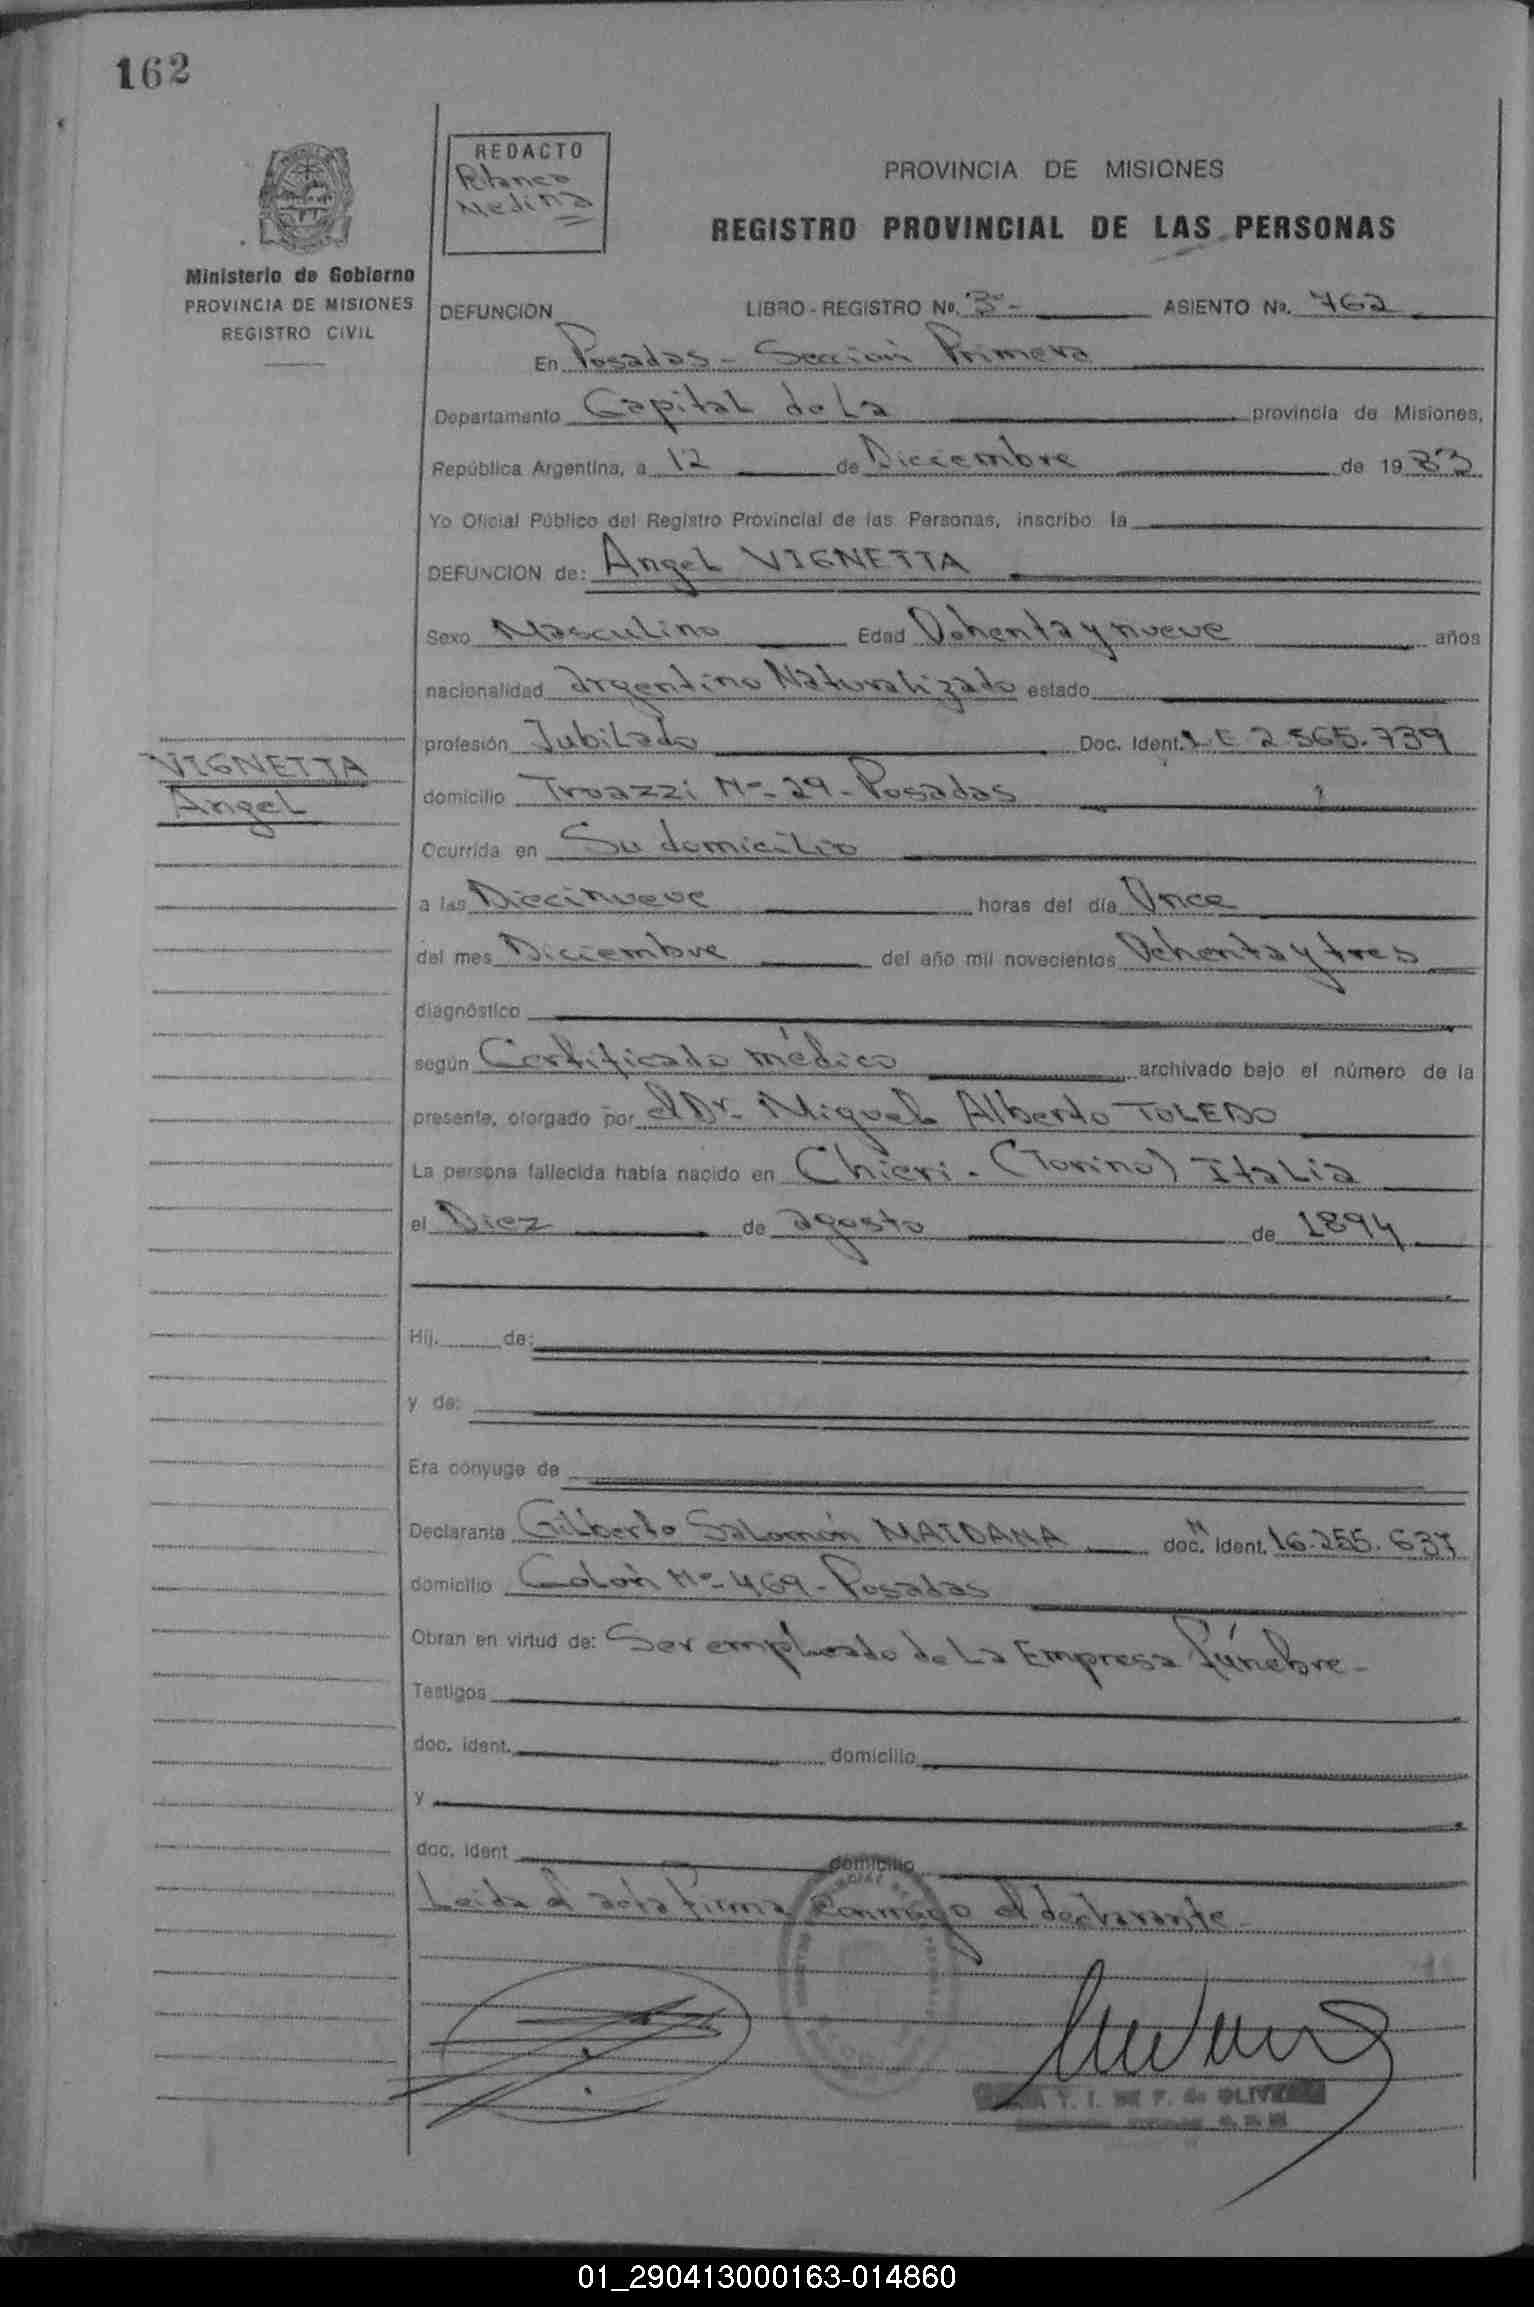 162
REDACTO
Blanca
Medina
PROVINCIA DE MISIONES
REGISTRO PROVINCIAL DE LAS PERSONAS
Ministerio de Gobierno
PROVINCIA DE MISIONES
REGISTRO CIVIL
DEFUNCION LIBRO - REGISTRO No. 3º- ASIENTO No. 762
En Posadas - Sección Primera
Departamento Capital de La provincia de Misiones,
República Argentina, a 12 de Diciembre de 1983
Yo Oficial Público del Registro Provincial de las Personas, inscribo la
DEFUNCION de: Angel VIGNETTA
Sexo Masculino Edad Ochenta y nueve años
nacionalidad argentino Naturalizado estado
profesión Jubilado Doc. Ident. L E 2.565.739
VIGNETTA
Angel
domicilio Troazzi Nº- 29 - Posadas
Ocurrida en Su domicilio
a las Diecinueve horas del día Once
del mes Diciembre del año mil novecientos Ochenta y tres
diagnóstico
según Certificado médico archivado bajo el número de la
presente, otorgado por el Dr. Miguel Alberto TOLEDO
La persona fallecida había nacido en Chieri - (Torino) Italia
el Diez de agosto de 1894
Hij. de:
y de:
Era cónyuge de
Declarante Gilberto Salomón MAIDANA doc. Ident. 16.255.637
domicilio Colón Nº- 469 - Posadas
Obran en virtud de: Ser empleado de La Empresa fúnebre -
Testigos
doc. ident. domicilio
y
doc. ident domicilio
Leida el acta firma conmigo el declarante -
T. I. DE F. de OLIVERA
01_290413000163-014860